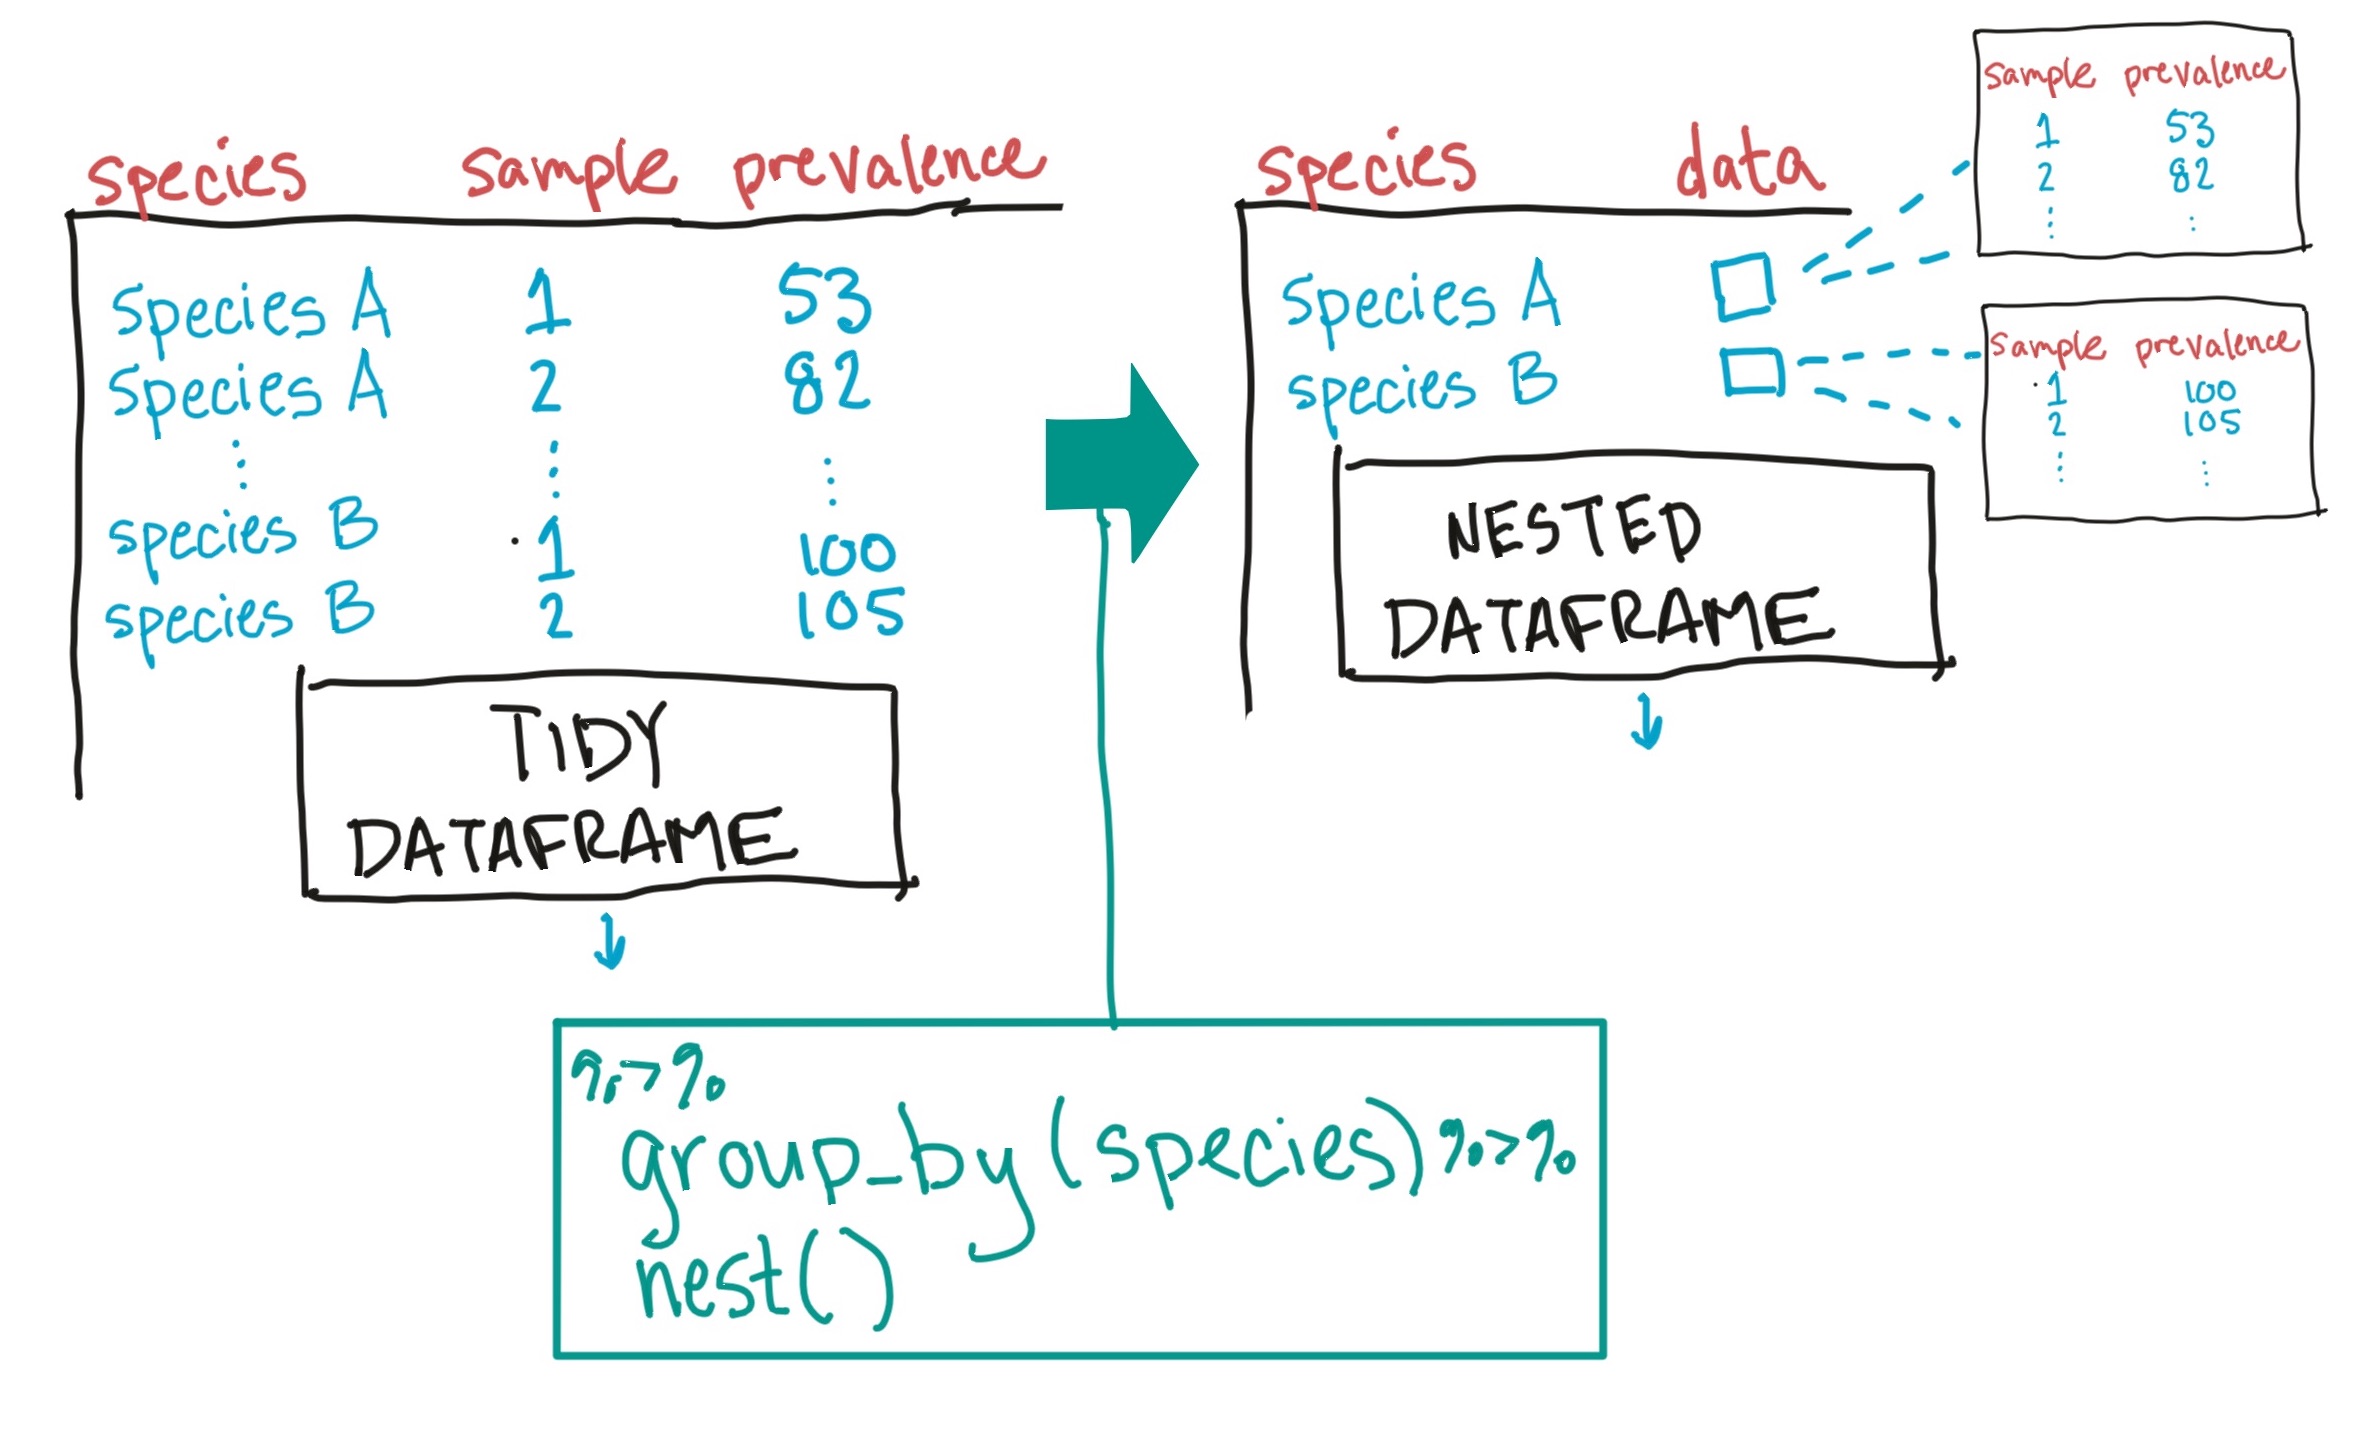 species sample prevalence
Species A 1 53
Species A 2 82
species B 1 100
species B 2 105
TIDY
DATAFRAME
species data
Species A
species B
NESTED
DATAFRAME
sample prevalence
1 53
2 82
sample prevalence
1 100
2 105
%>%
group_by(species) %>%
nest()